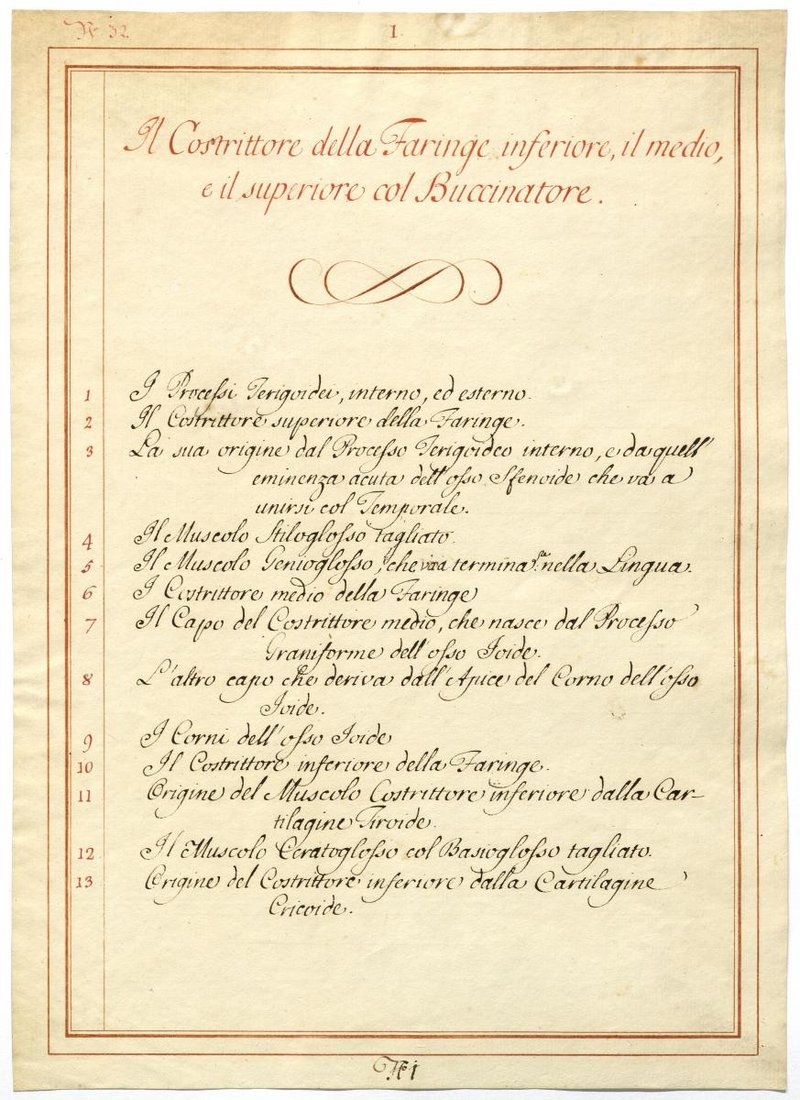 N.º 32
I
Il Costrittore della Faringe inferiore, il medio,
e il superiore col Buccinatore.
1 I Processi Terigoidei, interno, ed esterno.
2 Il Costrittore superiore della Faringe.
3 La sua origine dal Processo Terigoideo interno, e da quell'
eminenza acuta dell'osso Sfenoide che va a
unirsi col Temporale.
4 Il Muscolo Stiloglosso tagliato.
5 Il Muscolo Genioglosso, che va a terminar nella Lingua.
6 I Costrittore medio della Faringe
7 Il Capo del Costrittore medio, che nasce dal Processo
Graniforme dell'osso Joide.
8 L'altro capo che deriva dall'Apice del Corno dell'osso
Joide.
9 I Corni dell'osso Joide
10 Il Costrittore inferiore della Faringe.
11 Origine del Muscolo Costrittore inferiore dalla Car-
tilagine Tiroide.
12 Il Muscolo Ceratoglosso col Basioglosso tagliato.
13 Origine del Costrittore inferiore dalla Cartilagine
Cricoide.
Nº 1